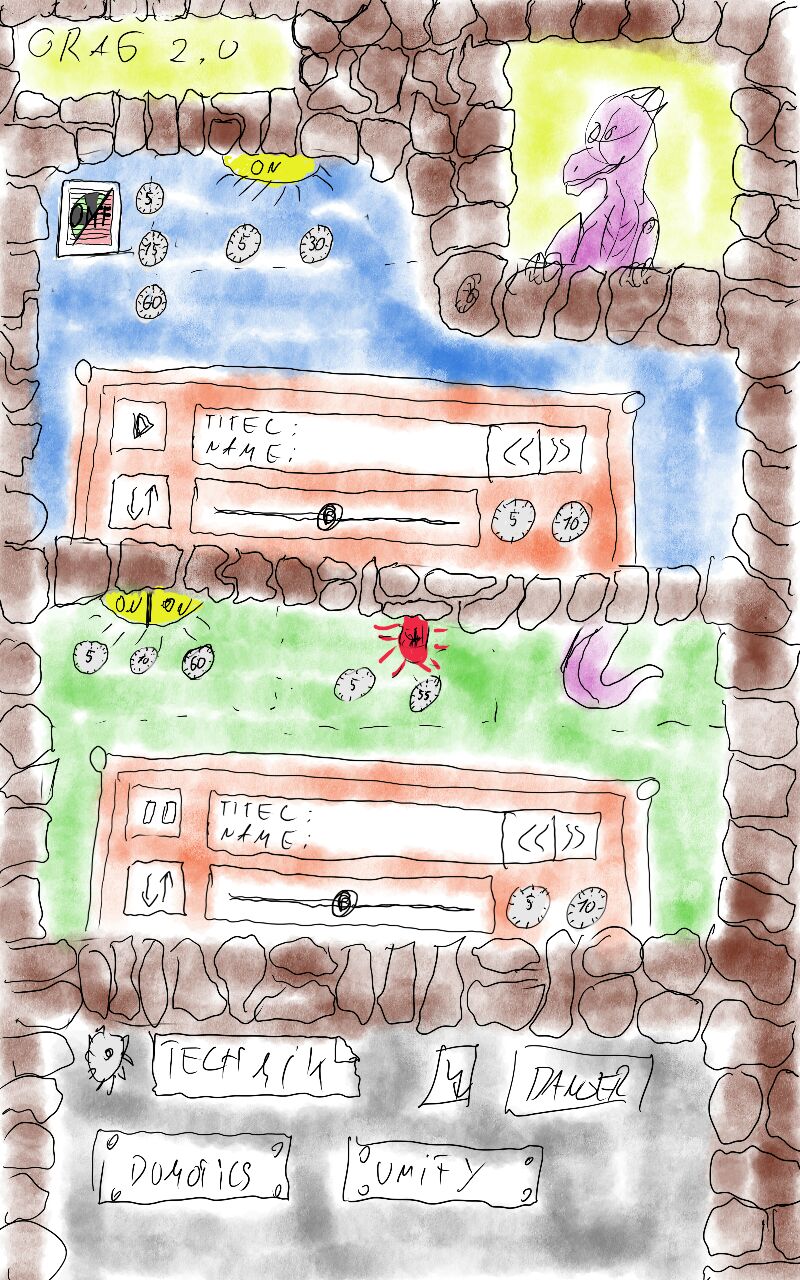 GRAG 2.0
ON
OFF
5
15
5
30
60
TITEL:
NAME:
<< >>
5
10
ON ON
5
10
60
5
55
TITEL:
NAME:
<< >>
5
10
TECHNIK
DANGER
DOMOTICS
UNIFY